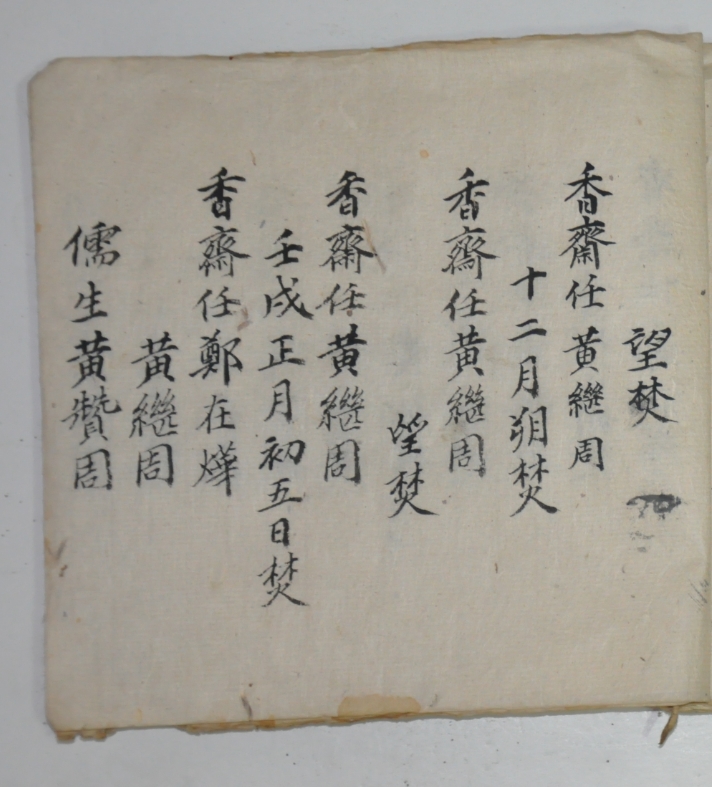 望焚
香齋任黃繼周
十二月朔焚
香齋任黃繼周
望焚
香齋任黃繼周
壬戌正月初五日焚
香齋任鄭在燁
黃繼周
儒生黃贊周